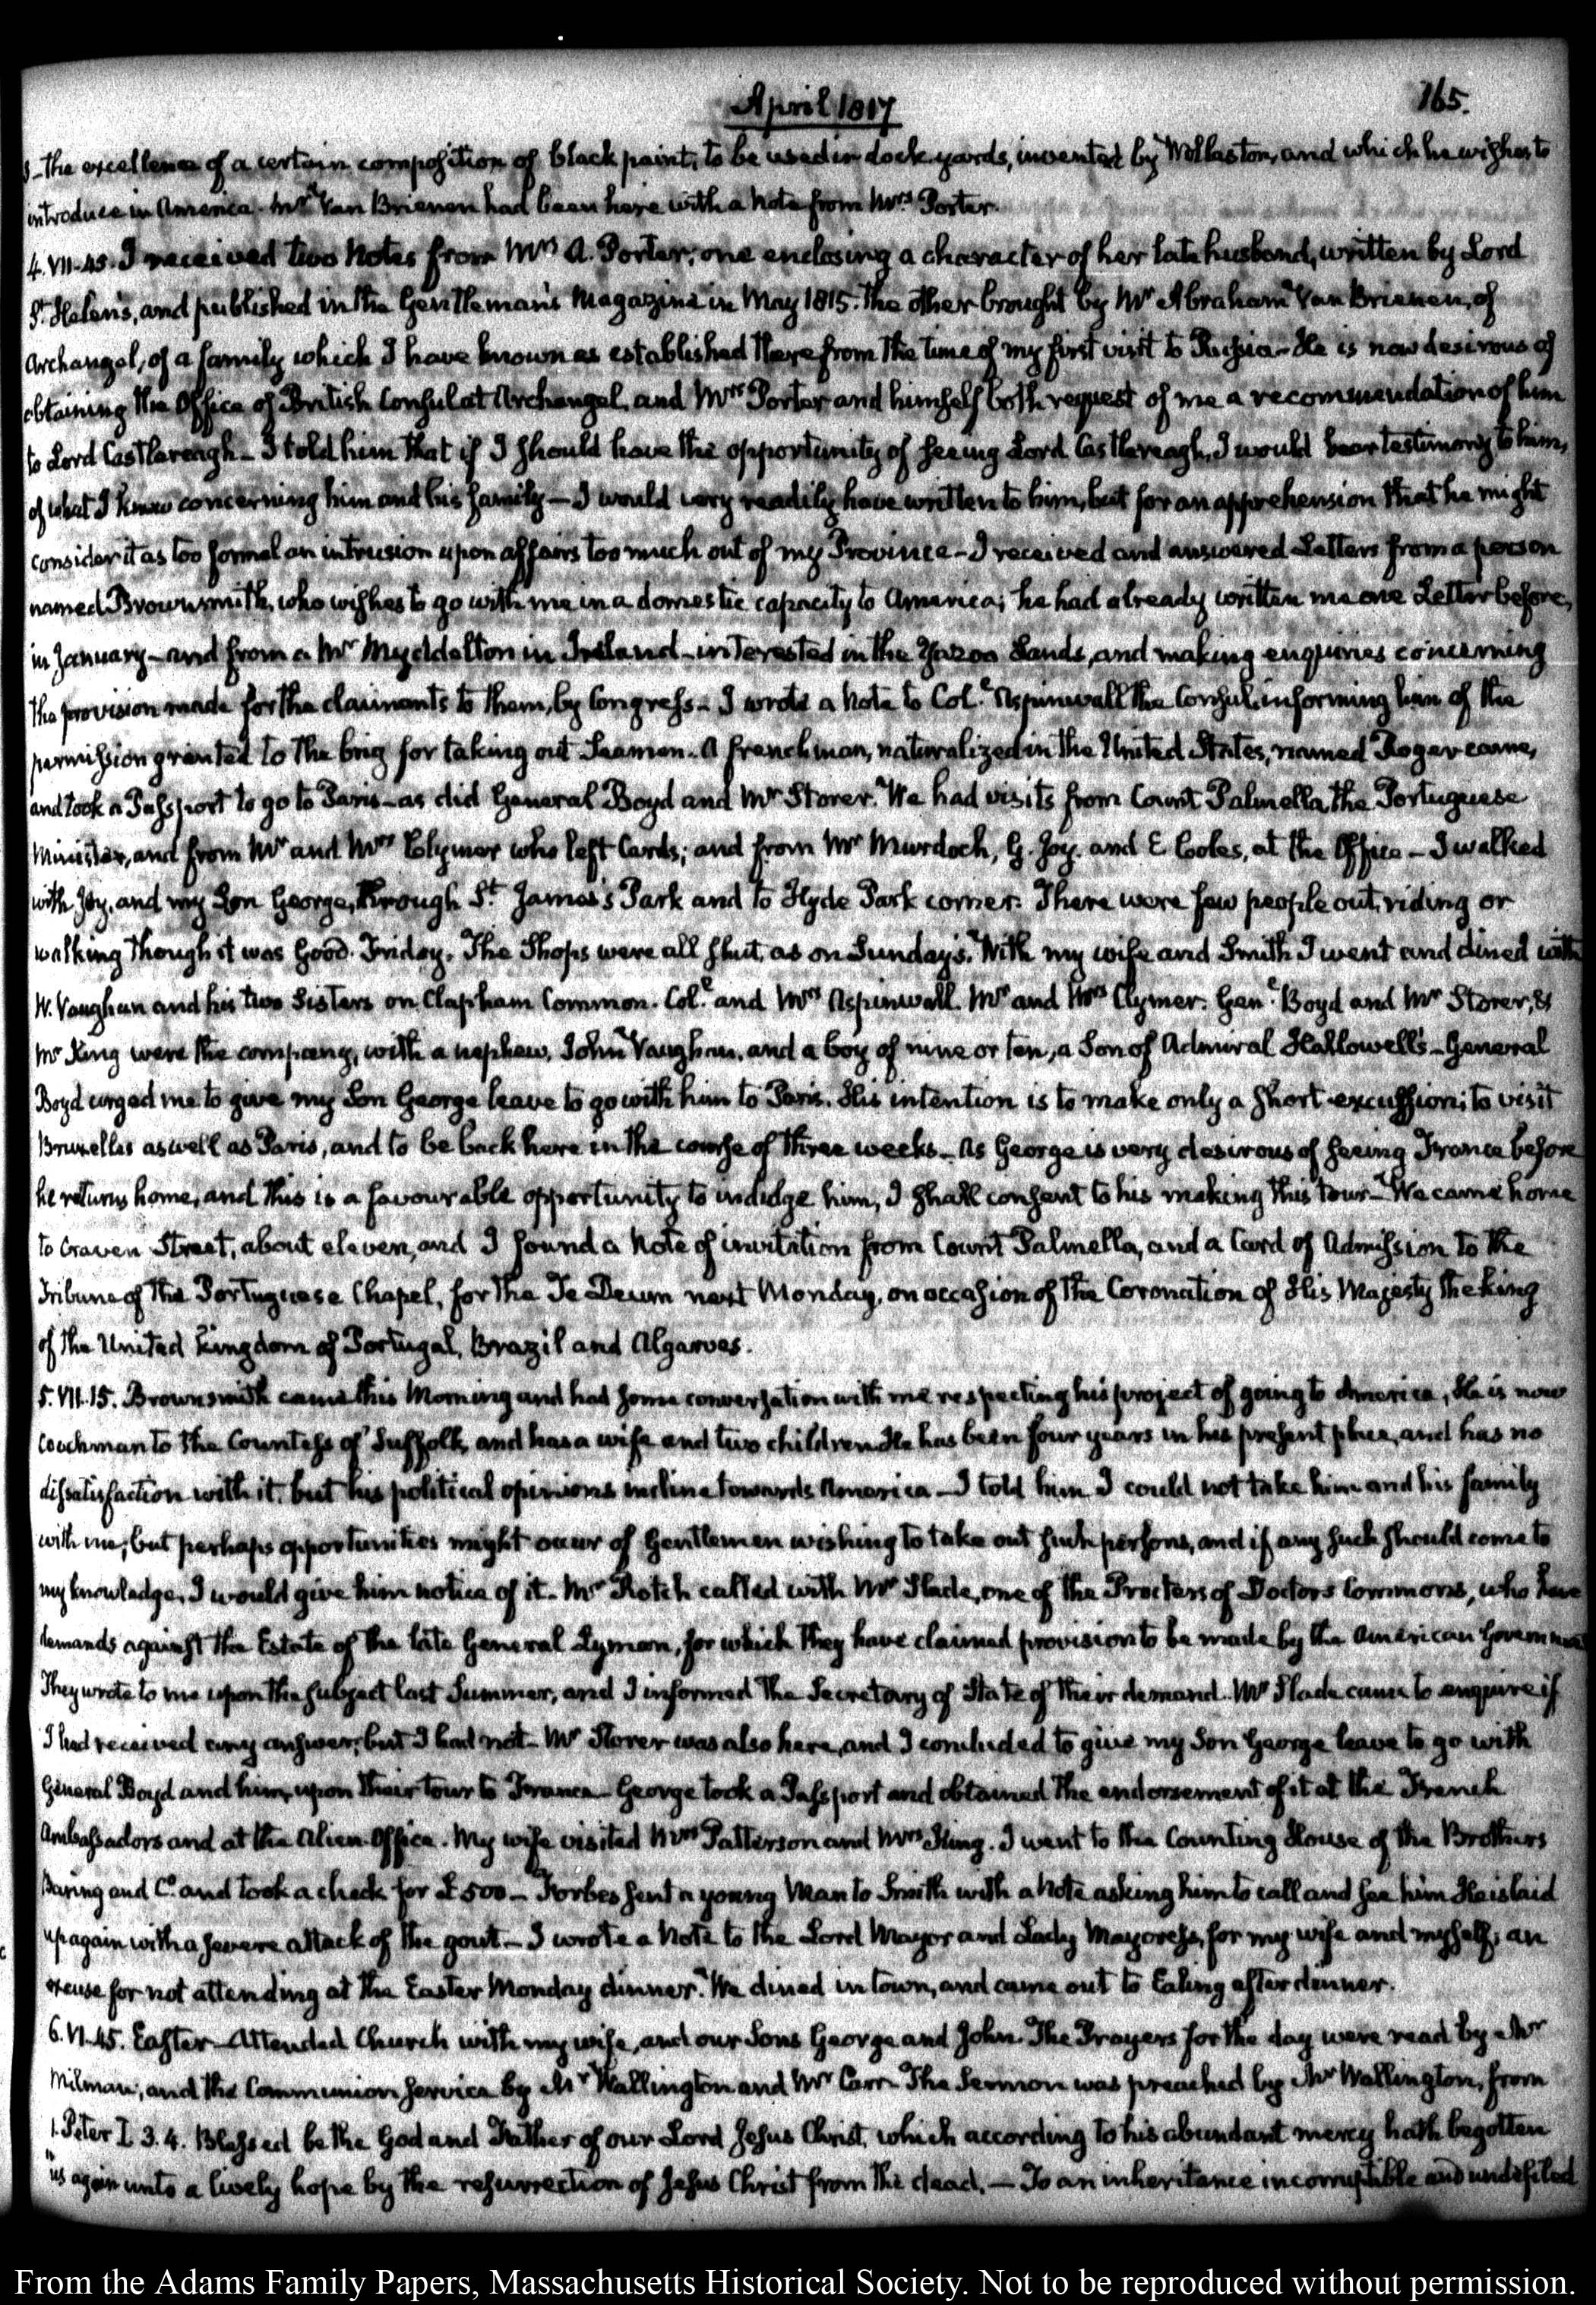 April 1817
165.
3_ the excellence of a certain composition of black paint, to be used in dock yards, invented by Wollaston, and which he wishes to
introduce in America. Mr Van Brienen had been here with a Note from Mrs Porter.
4. VII-45. I received two Notes from Mrs A. Porter; one enclosing a character of her late husband, written by Lord
St Helen's, and published in the Gentleman's Magazine in May 1815. The other brought by Mr Abraham Van Brienen, of
Archangel, of a family which I have known as established there from the time of my first visit to Russia_ He is now desirous of
obtaining the Office of British Consul at Archangel, and Mrs Porter and himself both request of me a recommendation of him
to Lord Castlereagh_ I told him that if I should have the opportunity of seeing Lord Castlereagh, I would bear testimony to him,
of what I know concerning him and his family_ I would very readily have written to him, but for an apprehension that he might
consider it as too formal an intrusion upon affairs too much out of my Province_ I received and answered Letters from a person
named Brownsmith, who wishes to go with me in a domestic capacity to America; he had already written me one Letter before,
in January_ and from a Mr Myddelton in Ireland_ interested in the Yazoo Lands, and making enquiries concerning
the provision made for the claimants to them, by Congress_ I wrote a Note to Col. Aspinwall the Consul, informing him of the
permission granted to the brig for taking out Seamen. A frenchman, naturalized in the United States, named Roger came,
and took a Passport to go to Paris_ as did General Boyd and Mr Storer. We had visits from Count Palmella, the Portuguese
Minister, and from Mr and Mrs Clymer who left Cards; and from Mr Murdoch, G. Joy, and E Coles, at the Office_ I walked
with Joy, and my Son George, through St James's Park and to Hyde Park corner. There were few people out, riding or
walking though it was Good-Friday. The Shops were all shut, as on Sundays. With my wife and Smith I went and dined with
W. Vaughan and his two Sisters on Clapham Common. Col. and Mrs Aspinwall. Mr and Mrs Clymer. Gen. Boyd and Mr Storer, &
Mr King were the company, with a nephew, John Vaughan, and a boy of nine or ten, a Son of Admiral Hallowell's_ General
Boyd urged me to give my Son George leave to go with him to Paris. His intention is to make only a short excursion; to visit
Bruxelles as well as Paris, and to be back here in the course of three weeks_ As George is very desirous of seeing France before
he returns home, and this is a favourable opportunity to indulge him, I shall consent to his making this tour_ We came home
to Craven Street, about eleven, and I found a Note of invitation from Count Palmella, and a Card of Admission to the
Tribune of the Portuguese Chapel, for the Te Deum next Monday, on occasion of the Coronation of His Majesty the King
of the United Kingdom of Portugal, Brazil and Algarves.
5. VII. 15. Brownsmith came this Morning and had some conversation with me respecting his project of going to America, He is now
Coachman to the Countess of Suffolk, and has a wife and two children. He has been four years in his present place, and has no
dissatisfaction with it, but his political opinions incline towards America_ I told him I could not take him and his family
with me; but perhaps opportunities might occur of Gentlemen wishing to take out such persons, and if any such should come to
my knowledge, I would give him notice of it. Mr Rotch called with Mr Slade, one of the Procters of Doctors Commons, who have
demands against the Estate of the late General Lyman, for which they have claimed provision to be made by the American Government
They wrote to me upon the subject last Summer, and I informed the Secretary of State of their demand.. Mr Slade came to enquire if
I had received any answer; but I had not_ Mr Storer was also here, and I concluded to give my Son George leave to go with
General Boyd and him, upon their tour to France_ George took a Passport and obtained the endorsement of it at the French
Ambassadors and at the Alien-Office. My wife visited Mrs Patterson and Mrs King. I went to the Counting House of the Brothers
Baring and Co and took a check for £500_ Forbes sent a young Man to Smith with a Note asking him to call and see him He is laid
up again with a severe attack of the gout_ I wrote a Note to the Lord Mayor and Lady Mayoress, for my wife and myself; an
excuse for not attending at the Easter Monday dinner. We dined in town, and came out to Ealing after dinner.
6. VI. 45. Easter_ Attended Church with my wife, and our Sons George and John. The Prayers for the day were read by Mr
Milman; and the Communion service by Mr Wallington and Mr Carr_ The Sermon was preached by Mr Wallington, from
1. Peter I. 3. 4. Blessed be the God and Father of our Lord Jesus Christ, which according to his abundant mercy hath begotten
"us again unto a lively hope by the resurrection of Jesus Christ from the dead,_ To an inheritance incorruptible and undefiled
From the Adams Family Papers, Massachusetts Historical Society. Not to be reproduced without permission.